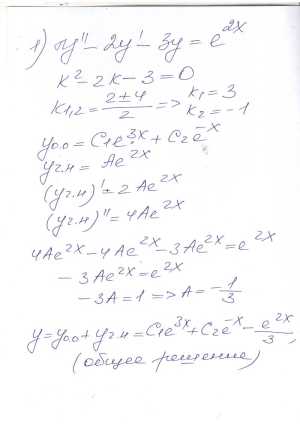 1) y'' - 2y' - 3y = e^{2x}
k² - 2k - 3 = 0
k1,2 = (2 ± 4)/2 => k₁ = 3
k₂ = -1
yo.o = C1e^{3x} + C2e^{-x}
yч.н = Ae^{2x}
(yч.н)' = 2Ae^{2x}
(yч.н)'' = 4Ae^{2x}
4Ae^{2x} - 4Ae^{2x} - 3Ae^{2x} = e^{2x}
- 3Ae^{2x} = e^{2x}
- 3A = 1 => A = -1/3
y = yo.o + yч.н = C1e^{3x} + C2e^{-x} - e^{2x}/3,
(общее решение)